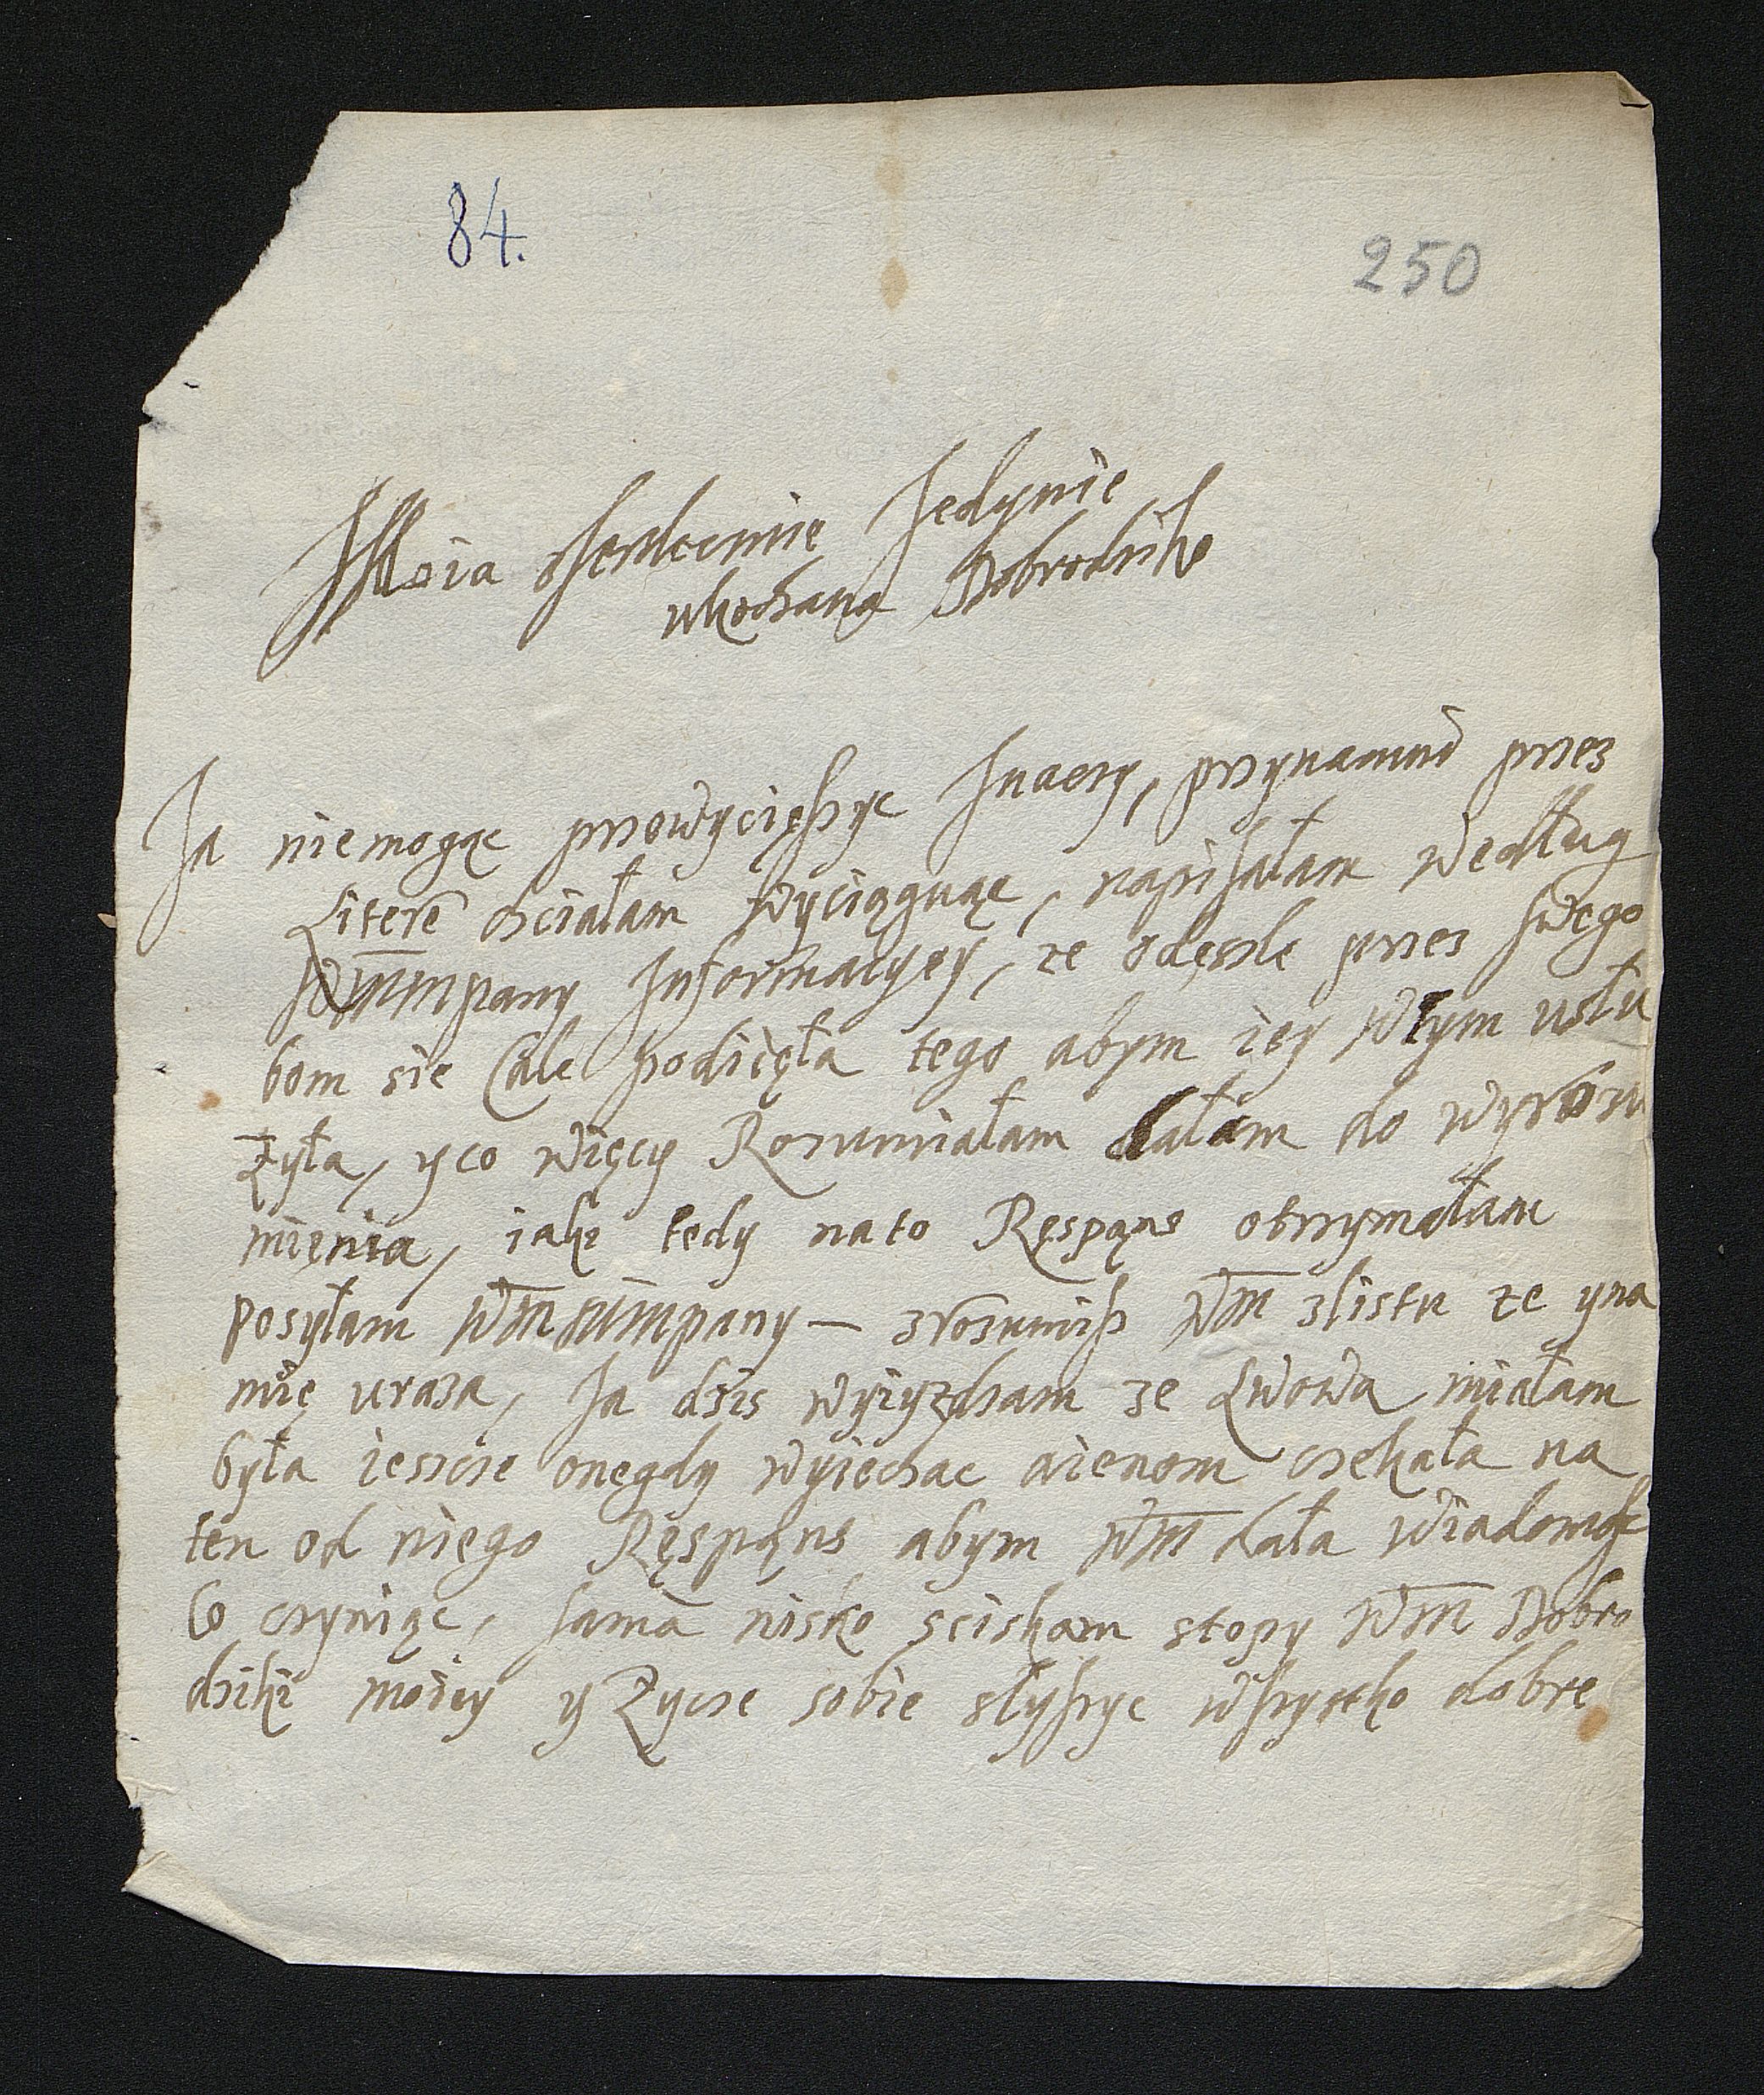 84.
250
Moia Serdecnie Jedynie
ukochana Dobrodziko
Ja niemogąc przewyciężyc Inaczy, przynamni przez
Litere chciałam wyciągnąc, napisałam według
WMMpany Informacyey, ze odeszle przes swego
bom sie Cale podięła tego abym iey wtym usłu
żyła, y co więcy Rozumiałam dałam do wyrozu
mięnia, iaki tedy na to Ręspąns otrzymałam
posyłam WMMMpany – zrozumisz WM zlistu ze yna
mię uraza, Ja dzis wyiyzdzam ze Lwowa miałam
była iescze onegdy wyiechac aienom czekała na
ten od niego Ręspąns abym WM dała wiadomosc
Co czyniąc, sama nisko scískam stopy WM Dobro
dziki moiey y Zycze sobie slyszyc wszystko dobre